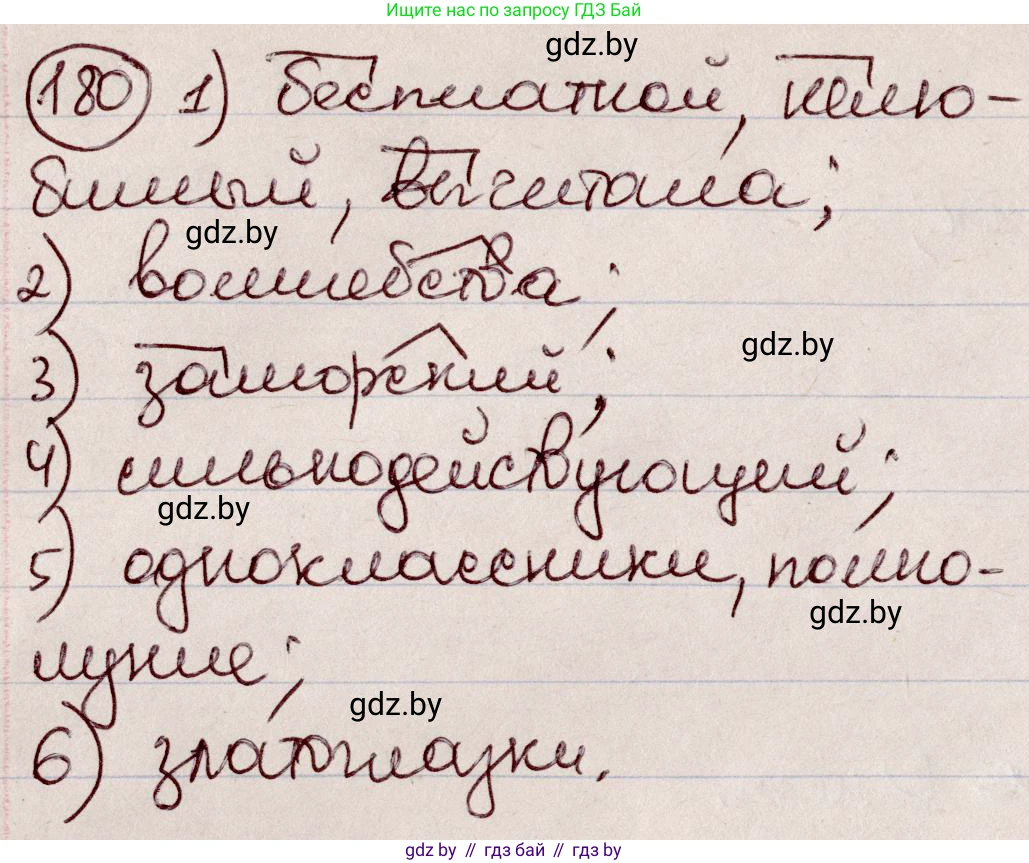 Ищите нас по запросу ГДЗ Бай
gdz.by
180 1) бесплатной, нелю-
бимый, вычитала;
gdz.by
2) волшебства;
gdz.by
3) заморский;
4) сильнодействующий;
gdz.by
5) одноклассники, полно-
gdz.by
луние;
gdz.by
6) златоглазки.
gdz.by // гдз бай // гдз by